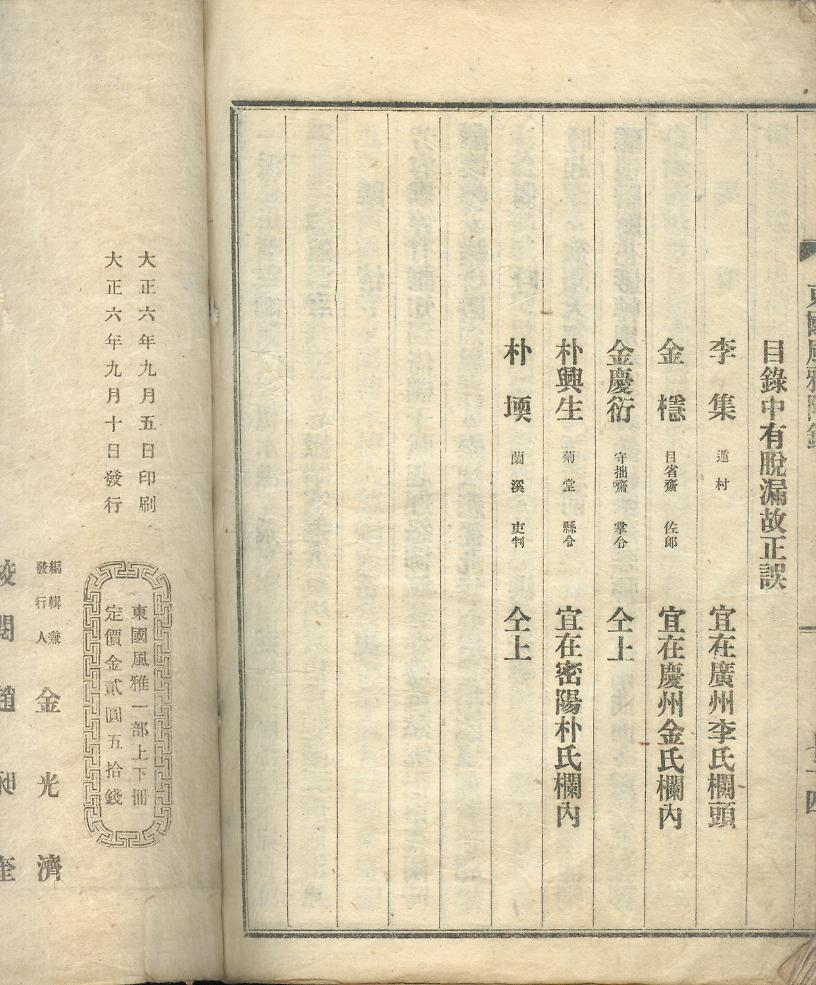 東國風雅附錄
目錄中有脫漏故正誤
李集 遁村 宜在廣州李氏欄頭
金檼 日省齋 佐郞 宜在慶州金氏欄內
金慶衍 守拙齋 掌令 仝上
朴興生 菊堂 縣令 宜在密陽朴氏欄內
朴堧 蘭溪 吏判 仝上
大正六年九月五日印刷
大正六年九月十日發行
東國風雅一部上下冊
定價金貳圓五拾錢
編輯兼
發行人 金光濟
校閱 趙
奎